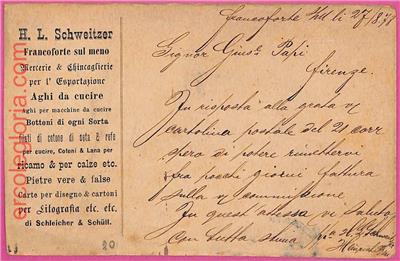 H. L. Schweitzer
Francoforte sul meno
Mercerie & Chincaglierie
per l' Esportazione
Aghi da cucire
Aghi per macchine da cucire
Bottoni di ogni Sorta
di cotone di seta & refe
per cucire, Cotoni & Lana per
ricamo & per calze etc.
Pietre vere & false
Carte per disegno & cartoni
per Litografia etc. etc.
di Schleicher & Schüll.
20
Francoforte s/M li 27
Signor Gius. Papi
Firenze.
In risposta alla grata
cartolina postale del 21 corr
spero di potere rimettervi
fra pochi giorni fattura
sulla commissione.
In quest' attesa vi saluto
con tutta stima
ercoledoria.com